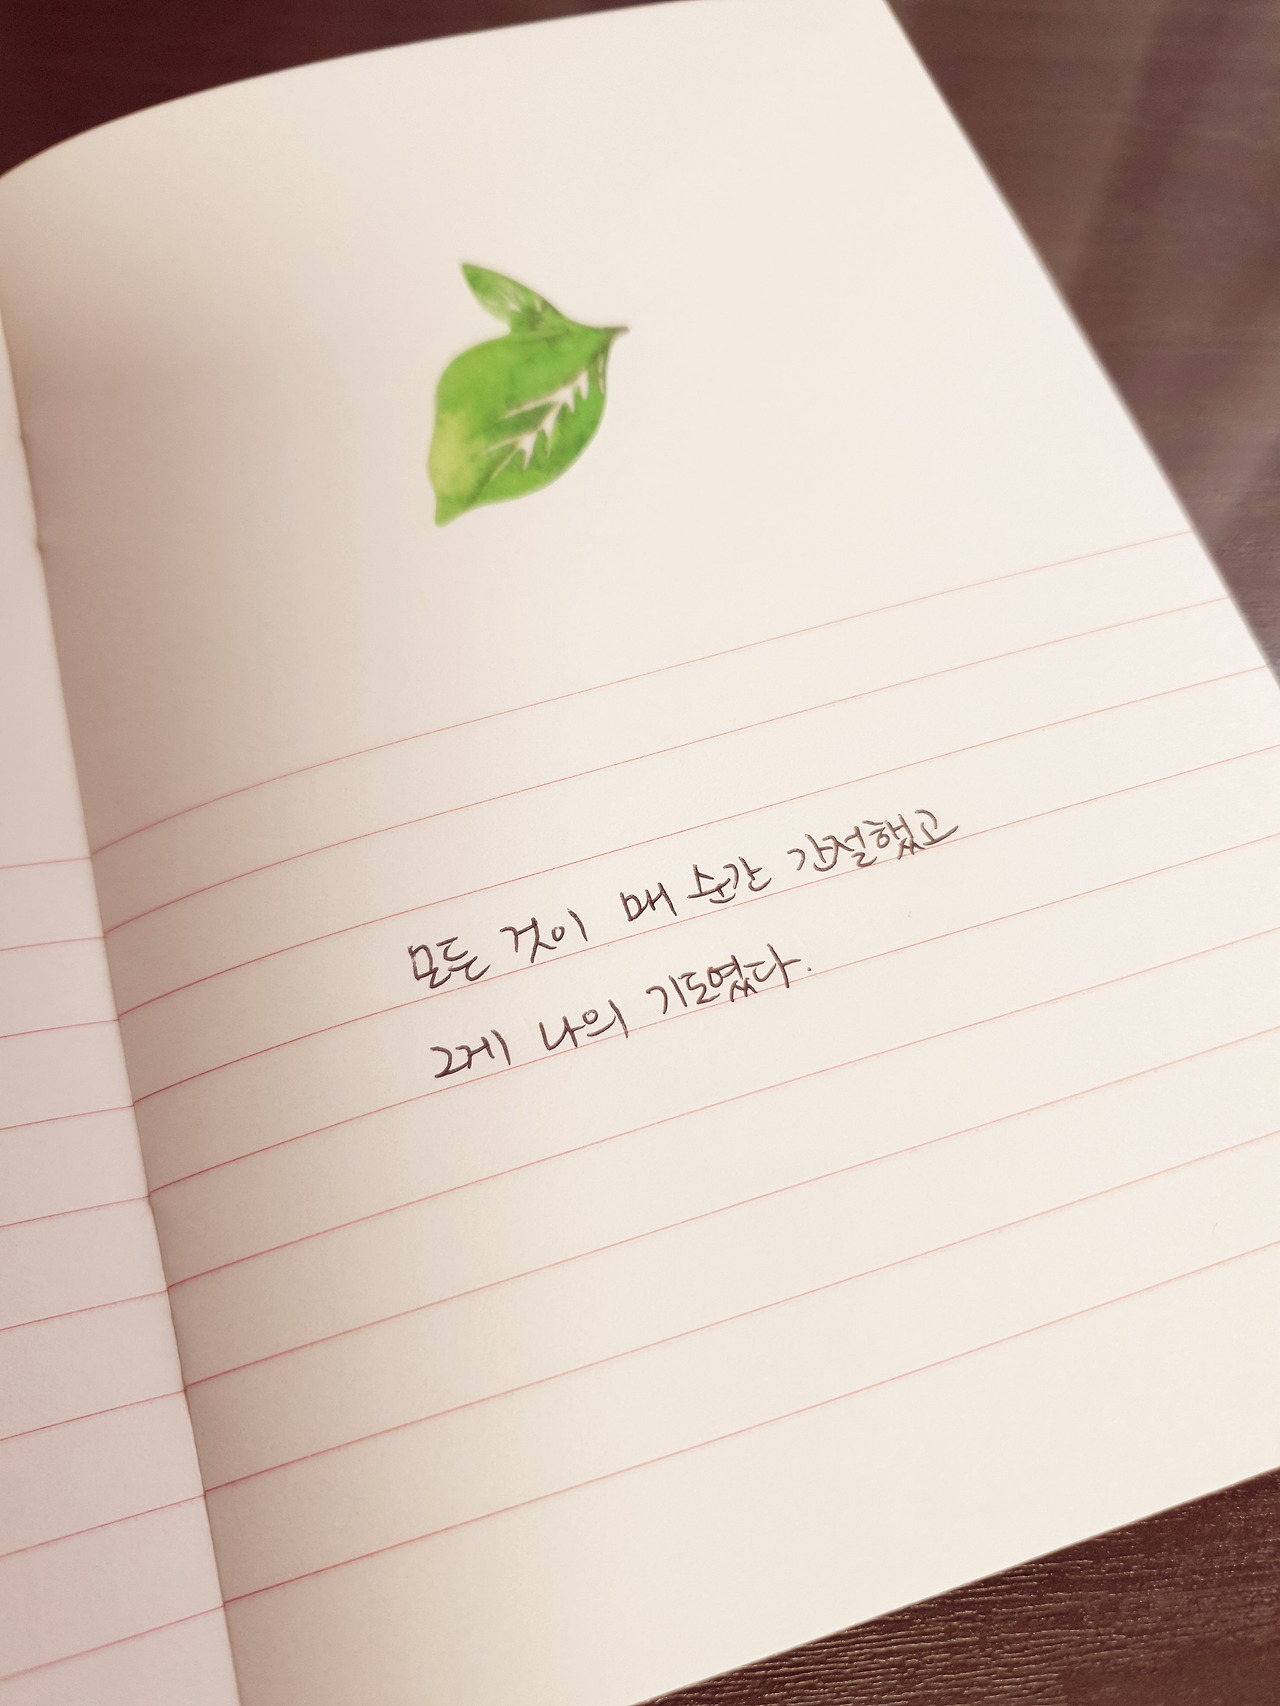 모든 것이 매 순간 간절했고
그게 나의 기도였다.